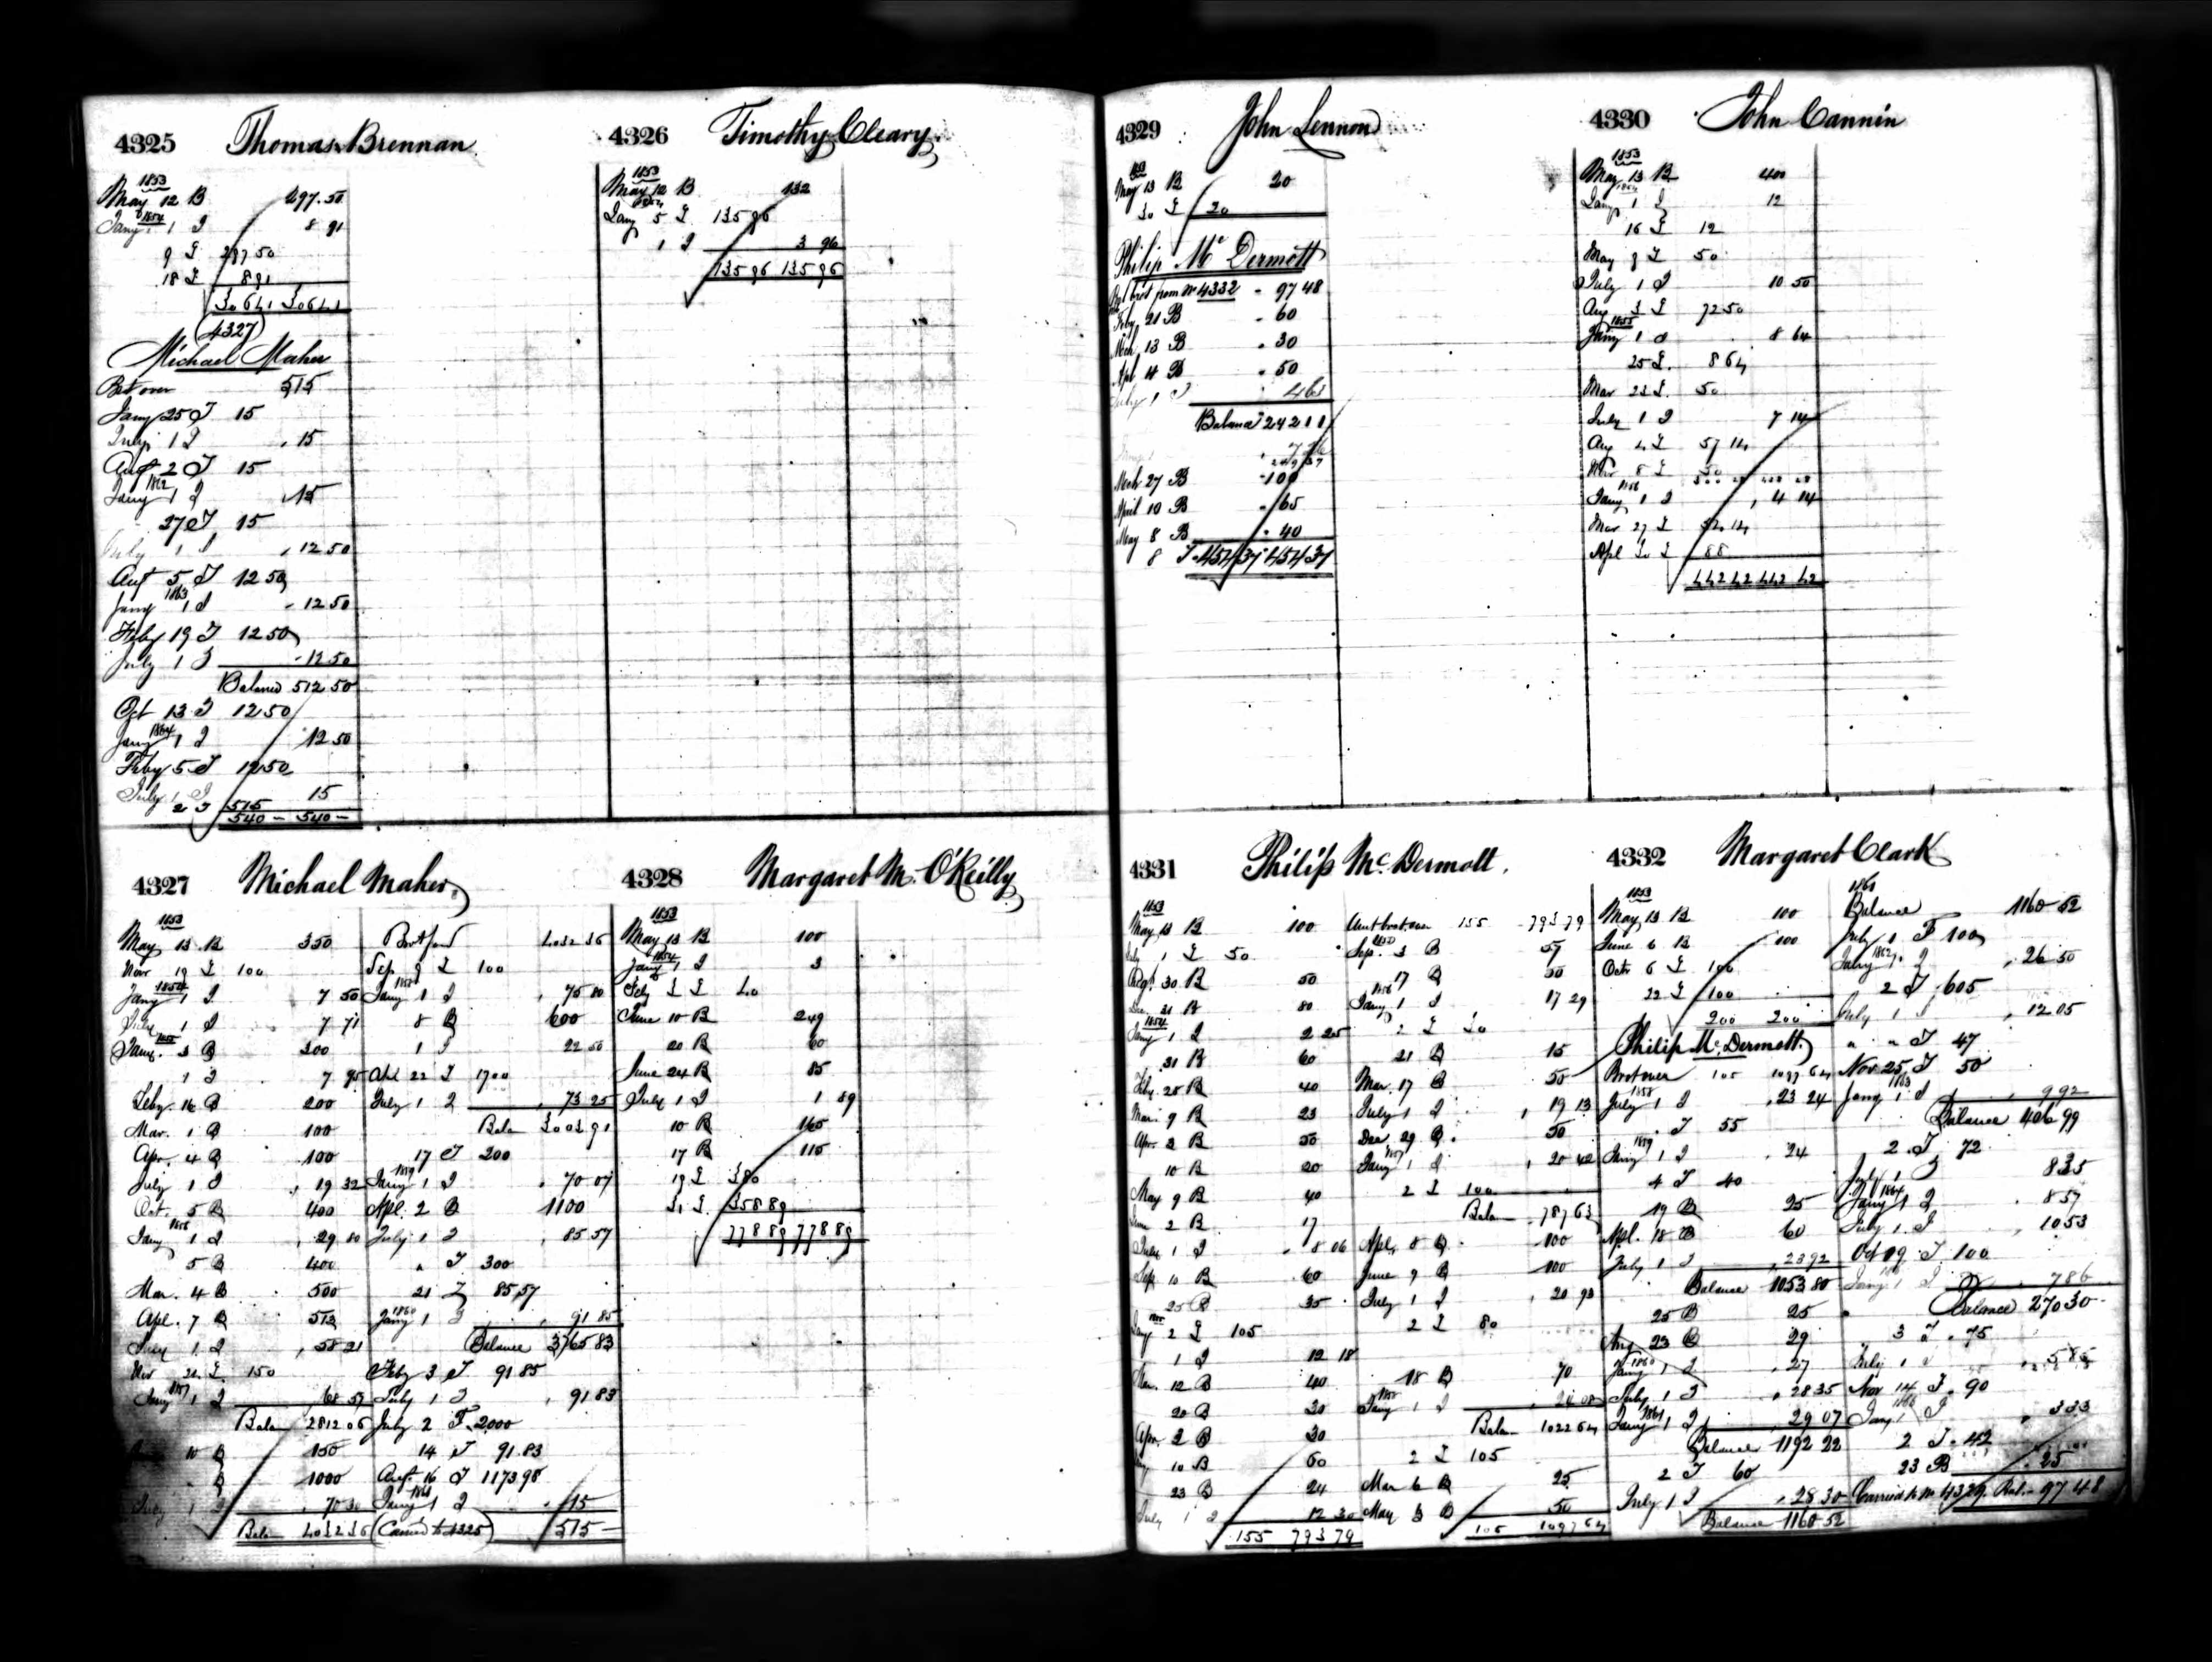 4325 Thomas Brennan
1853
May 12 B 297.50
Jany 1854 1 I 8 91
9 T 297 50
18 T 8 91
306 41 306 41
(4327)
Michael Maher
Brt over 515
Jany 25 T 15
July 1 I 15
Augt 2 T 15
Jany 1862 1 I 15
27 T 15
July 1 I 12 50
Augt 5 T 12 50
Jany 1863 1 I 12 50
Feby 19 T 12 50
July 1 I 12 50
Balance 512 50
Oct 13 T 12 50
Jany 1864 1 I 12 50
Feby 5 T 12 50
July 1 I 15
2 T 515
540 - 540 -
4326 Timothy Cleary
1853
May 12 B 132
Jany 1854 5 T 135 96
1 I 3 96
135 96 135 96
4327 Michael Maher
1853
May 13 B 350
Novr 19 T 100
Jany 1854 1 I 7 50
July 1 I 7 71
Jany 1855 3 B 300
1 I 7 95
Feby. 16 B 200
Mar. 1 B 100
Apr. 4 B 100
July 1 I 19 32
Oct. 5 B 400
Jany 1856 1 I 29 80
5 B 400
Mar. 4 B 500
Apl. 7 B 513
July 1 I 58 21
Nov 21 T 150
Jany 1857 1 I 68 57
Balan 2812 06
10 B 150
B 1000
July 1 I 70 30
Balan 4032 36
Brot ford 4032 36
Sep 9 T 100
Jany 1858 1 I 75 80
8 B 600
1 I 22 50
Apl 22 T 1700
July 1 I 73 25
Balan 3003 91
17 T 200
Jany 1859 1 I 70 07
Apl. 2 B 1100
July 1 I 85 57
" T 300
21 T 85 57
Jany 1860 1 I 91 85
Balance 3765 83
Feby 3 T 91 85
July 1 I 91 83
July 2 T 2000
14 T 91.83
Augt 16 T 1173 98
Jany 1861 1 I 15
(Carried to 4325) 515 -
4328 Margaret M. O'Reilly
1853
May 13 B 100
Jany 1854 1 I 3
Feby 3 T 40
June 10 B 249
20 B 60
June 24 B 85
July 1 I 1 89
10 B 165
17 B 115
19 T 380
31 T 358 89
778 89 778 89
4329 John Lennon
May 13 B 20
30 T 20
Philip McDermott
Bal brot from No 4332 97 48
Feby 21 B 60
Mch 13 B 30
Apl 4 B 50
July 1 I 4 63
Balance 242 11
7 26
249 37
Mch 27 B 100
April 10 B 65
May 8 B 40
8 T 454 37 454 37
4330 John Cannin
1853
May 13 B 400
Jany 1854 1 I 12
16 T 12
May 9 T 50
July 1 I 10 50
Aug 3 T 72 50
Jany 1855 1 I 8 64
25 T. 8 64
Mar 23 T. 50
July 1 I 7 14
Aug 4 T 57 14
Nov 8 T 50
Jany 1856 1 I 4 14
Mar 27 T 54 14
Apl 30 T 88
442 42 442 42
4331 Philip McDermott.
1853
May 13 B 100
July 1 T 50
Aug. 30 B 50
Dec. 21 B 80
Jany 1854 1 I 2 25
31 B 60
Feby. 28 B 40
Mar. 9 B 23
Apr. 2 B 50
10 B 20
May 9 B 40
June 2 B 17
July 1 I 8 06
Sep. 10 B 60
25 B 35
Jany 1855 2 T 105
1 I 12 18
Mar. 12 B 40
20 B 20
Apr. 2 B 30
10 B 60
23 B 24
July 1 I 12 30
155 793 79
Amt brot over 155 793 79
Sep. 3 B 57
17 B 30
Jany 1856 1 I 17 29
2 T 30
21 B 15
Mar. 17 B 50
July 1 I 19 13
Dec. 29 B. 50
Jany 1857 1 I 20 42
2 T 100
Balan 787 63
Apl. 8 B. 100
June 9 B 100
July 1 I 20 93
2 T 80
18 B 70
Jany 1858 1 I 24 08
Balan 1022 64
2 T 105
Mar 6 B 25
May 3 B 50
105 1097 64
4332 Margaret Clark
1853
May 13 B 100
June 6 B 100
Octr 6 T 100
22 T 100
200 200
Philip McDermott.
Brot over 105 1097 64
July 1858 1 I 23 24
" T 55
Jany 1859 1 I 24
4 T 40
19 B 25
Apl. 18 B 60
July 1 I 23 92
Balance 1053 80
25 B 25
Aug 23 B 29
Jany 1860 1 I 27
July 1 I 28 35
Jany 1861 1 I 29 07
Balance 1192 22
2 T 60
July 1 I 28 30
Balance 1160 52
1861
Balance 1160 52
July 1 T 100
Jany 1862 1 I 26 50
2 T 605
July 1 I 12 05
" " T 47
Nov 25 T 50
Jany 1863 1 I 9 92
Balance 406 99
2 T 72
July 1 I 8 35
Jany 1864 1 I 8 57
July 1 I 10 53
Oct 19 T 100
Jany 1 I 7 86
Balance 270 30
3 T 75
July 1 I 5 85
Nov 14 T 90
Jany 1866 1 I 3 33
2 T 42
23 B 25
Carried to No 4329 Bal. 97 48